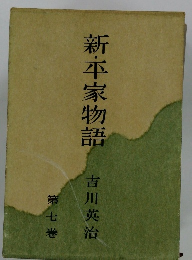 新・平家物語
吉川英治
第七巻